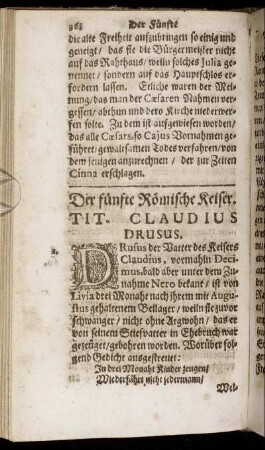 268 Der Fünfte
die alte Freiheit auszubringen so einig und
geneigt / das sie die Bürgermeister nicht
auf das Rahthaus / weiln solches Julia ge-
nennet / sondern auf das Hauptschlos er-
fordern lassen. Etliche waren der Mei-
nung / das man der Cæsaren Nahmen ver-
gessen / abthun und dero Kirche niederwer-
fen solte. Zu dem ist aufgewiesen worden /
das alle Cæsars, so Cajus Vornahmen ge-
führet / gewaltsamen Todes verfahren / von
dem jenigen anzurechnen / der zur Zeiten
Cinna erschlagen.
Der fünfte Römische Keiser.
TIT. CLAUDIUS
DRUSUS.
DRusus der Vatter des Keisers
Claudius, vormahln Deci-
mus, bald aber unter dem Zu-
nahme Nero bekant / ist von
Livia drei Monaht nach ihrem mit Augu-
stus gehaltenem Beilager / weiln sie zuvor
schwanger / nicht ohne Argwohn / das er
von seinem Stiefvatter in Ehebruch war
gezeüget / gebohren worden. Worüber fol-
gend Gedicht ausgestreuet:
In drei Monaht Kinder zeugen /
Wiederfährt nicht jedermann /
Wel-